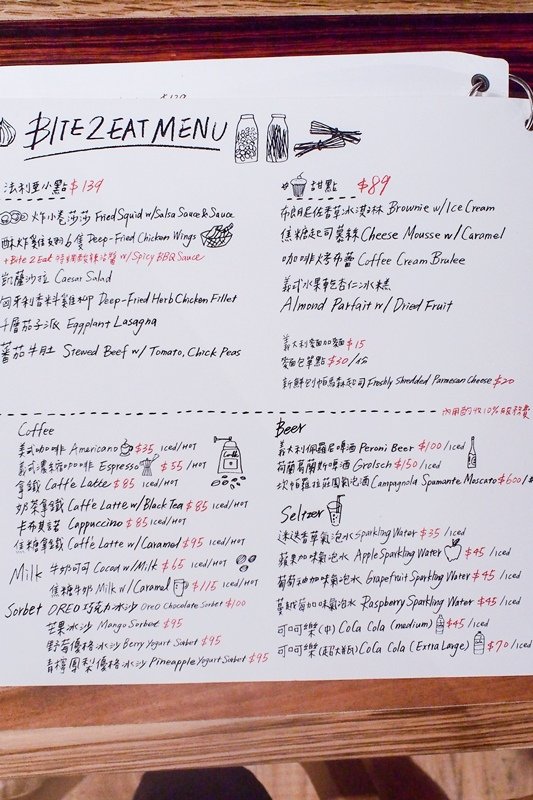 BITE2EAT MENU
法利亞小點 $139
炸小卷莎莎 Fried Squid w/Salsa Sauce & Sauce
酥炸雞翅 6隻 Deep-Fried Chicken Wings
+Bite 2 Eat 特調酸辣沾醬 w/ Spicy BBQ Sauce
凱薩沙拉 Caesar Salad
匈牙利香料雞柳 Deep-Fried Herb Chicken Fillet
千層茄子派 Eggplant Lasagna
蕃茄牛肚 Stewed Beef w/ Tomato, Chick Peas
甜點 $89
布朗尼佐香草冰淇淋 Brownie w/ Ice Cream
焦糖起司慕絲 Cheese Mousse w/ Caramel
咖啡烤布蕾 Coffee Cream Brulee
義式水果乾杏仁冰糕
Almond Parfait w/ Dried Fruit
義大利麵加麵 $15
麵包單點 $30/份
新鮮刨帕瑪森起司 Freshly Shredded Parmesan Cheese $20
內用酌收10%服務費
Coffee
美式咖啡 Americano $35 iced/HOT
義式濃縮咖啡 Espresso $55 /HOT
拿鐵 Caffè Latte $85 iced/HOT
奶茶拿鐵 Caffè Latte w/Black Tea $85 iced/HOT
卡布其諾 Cappuccino $85 iced/HOT
焦糖拿鐵 Caffè Latte w/Caramel $95 iced/HOT
Milk 牛奶可可 Cocoa w/Milk $65 iced/HOT
焦糖牛奶 Milk w/Caramel $115 iced/HOT
Sorbet OREO巧克力冰沙 Oreo Chocolate Sorbet $100
芒果冰沙 Mango Sorbet $95
野莓優格冰沙 Berry Yogurt Sorbet $95
青檸鳳梨優格冰沙 Pineapple Yogurt Sorbet $95
Beer
義大利佩羅尼啤酒 Peroni Beer $100/iced
荷蘭葛蘭斯啤酒 Grolsch $150/iced
坎帕羅拉莊園氣泡酒 Campagnola Spumante Moscato $600/
Seltzer
迷迭香草氣泡水 Sparkling Water $35 /iced
蘋果加味氣泡水 Apple Sparkling Water $45 /iced
葡萄柚加味氣泡水 Grapefruit Sparkling Water $45 /iced
蔓越莓加味氣泡水 Raspberry Sparkling Water $45 /iced
可口可樂(中) Coca Cola (medium) $45 /iced
可口可樂(超大瓶) Coca Cola (Extra Large) $70 /iced